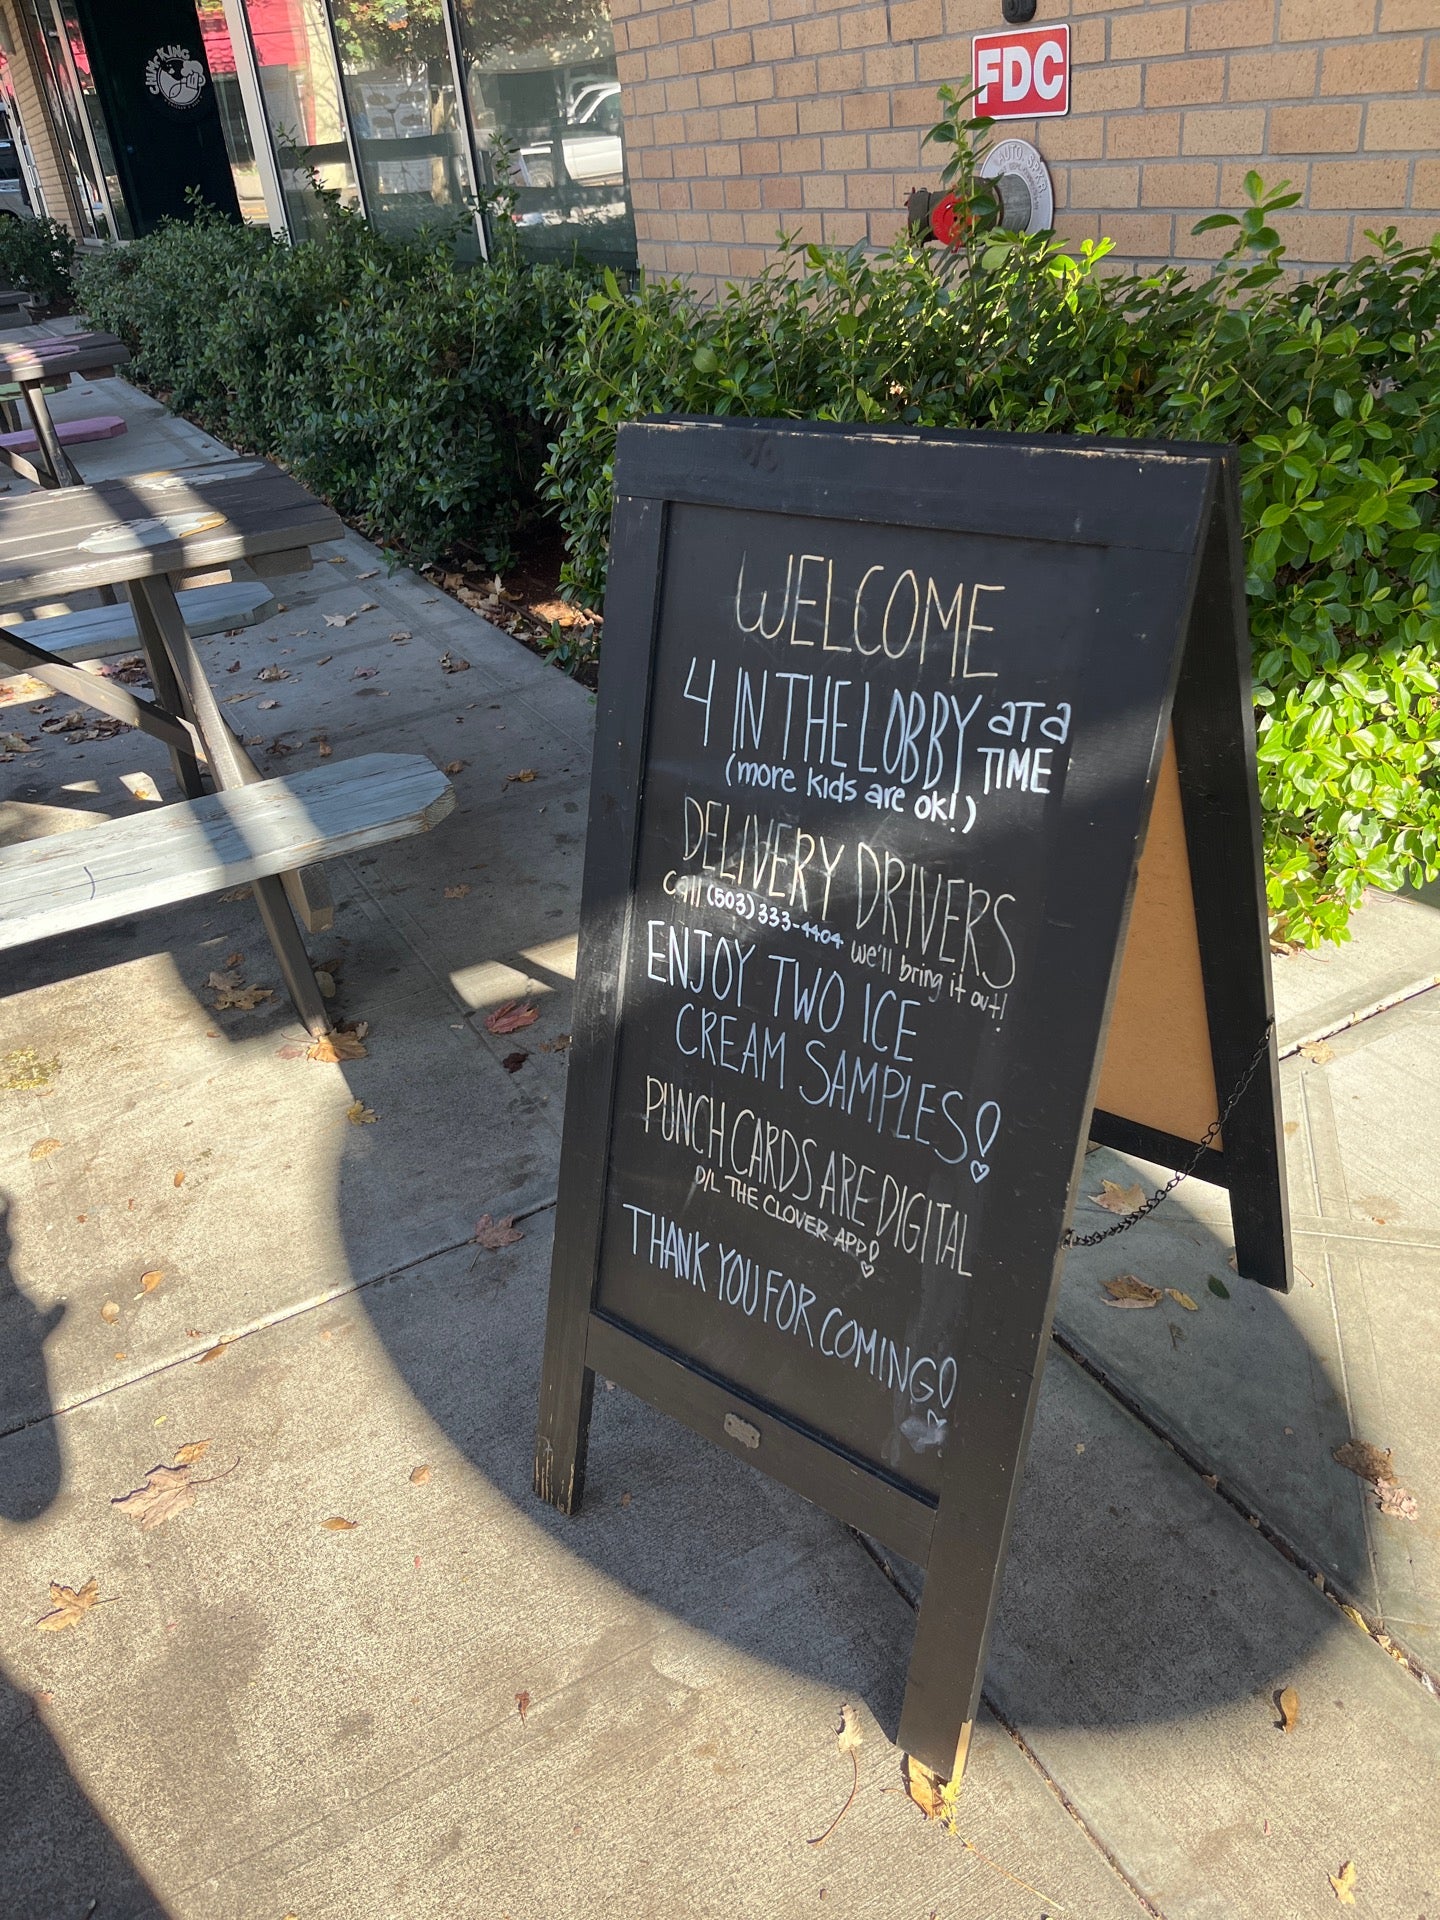 CHIM KING
FDC
AUTO. SPKR
WELCOME
4 IN THE LOBBY AT A TIME
(more kids are ok!)
DELIVERY DRIVERS
call (503) 333-4404 we'll bring it out!
ENJOY TWO ICE
CREAM SAMPLES!
PUNCH CARDS ARE DIGITAL
D/L THE CLOVER APP!
THANK YOU FOR COMING!